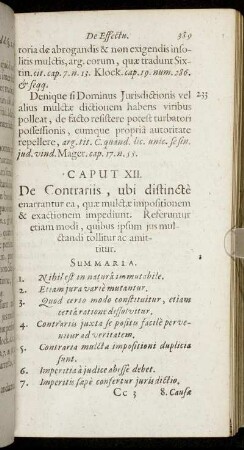 De Effectu. 389
toria de abrogandis & non exigendis inso-
litis mulctis, arg. eorum, quæ tradunt Six-
tin. tit. cap. 7. n. 13. Klock. cap. 19. num. 286.
& seqq.
Denique si Dominus Jurisdictionis vel 233
alius mulctæ dictionem habens viribus
polleat, de facto resistere potest turbatori
possessionis, eumque propria autoritate
repellere, arg. tit. C. quand. lic. unic. se sin.
jud. vind. Mager. cap. 17. n. 55.
CAPUT XII.
De Contrariis, ubi distinctè
enarrantur ea, quæ mulctæ impositionem
& exactionem impediunt. Referuntur
etiam modi, quibus ipsum jus mul-
ctandi tollitur ac amit-
titur.
SUMMARIA.
1. Nihil est in naturâ immutabile.
2. Etiam jura variè mutantur.
3. Quod certo modo constituitur, etiam
certâ ratione dissolvitur.
4. Contrariis juxta se positu facilè perve-
nitur ad veritatem.
5. Contraria mulctæ impositioni duplicia
sunt.
6. Imperitia à judice abesse debet.
7. Imperitis sæpè confertur jurisdictio.
Cc 3 8. Causæ